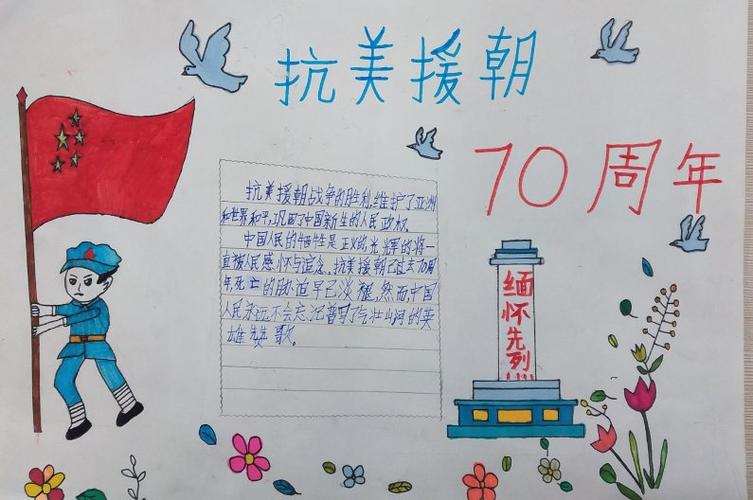 抗美援朝
70周年
抗美援朝战争的胜利,维护了亚洲
和世界和平,巩固了中国新生的人民政权。
中国人民的牺牲是正义的光辉的将一
直被人民感怀与谊念。抗美援朝已过去70周
年,死亡的胁迫早已淡褪,然而,中国
人民永远不会忘记普写了气壮山河的英
雄歌。
缅怀先烈